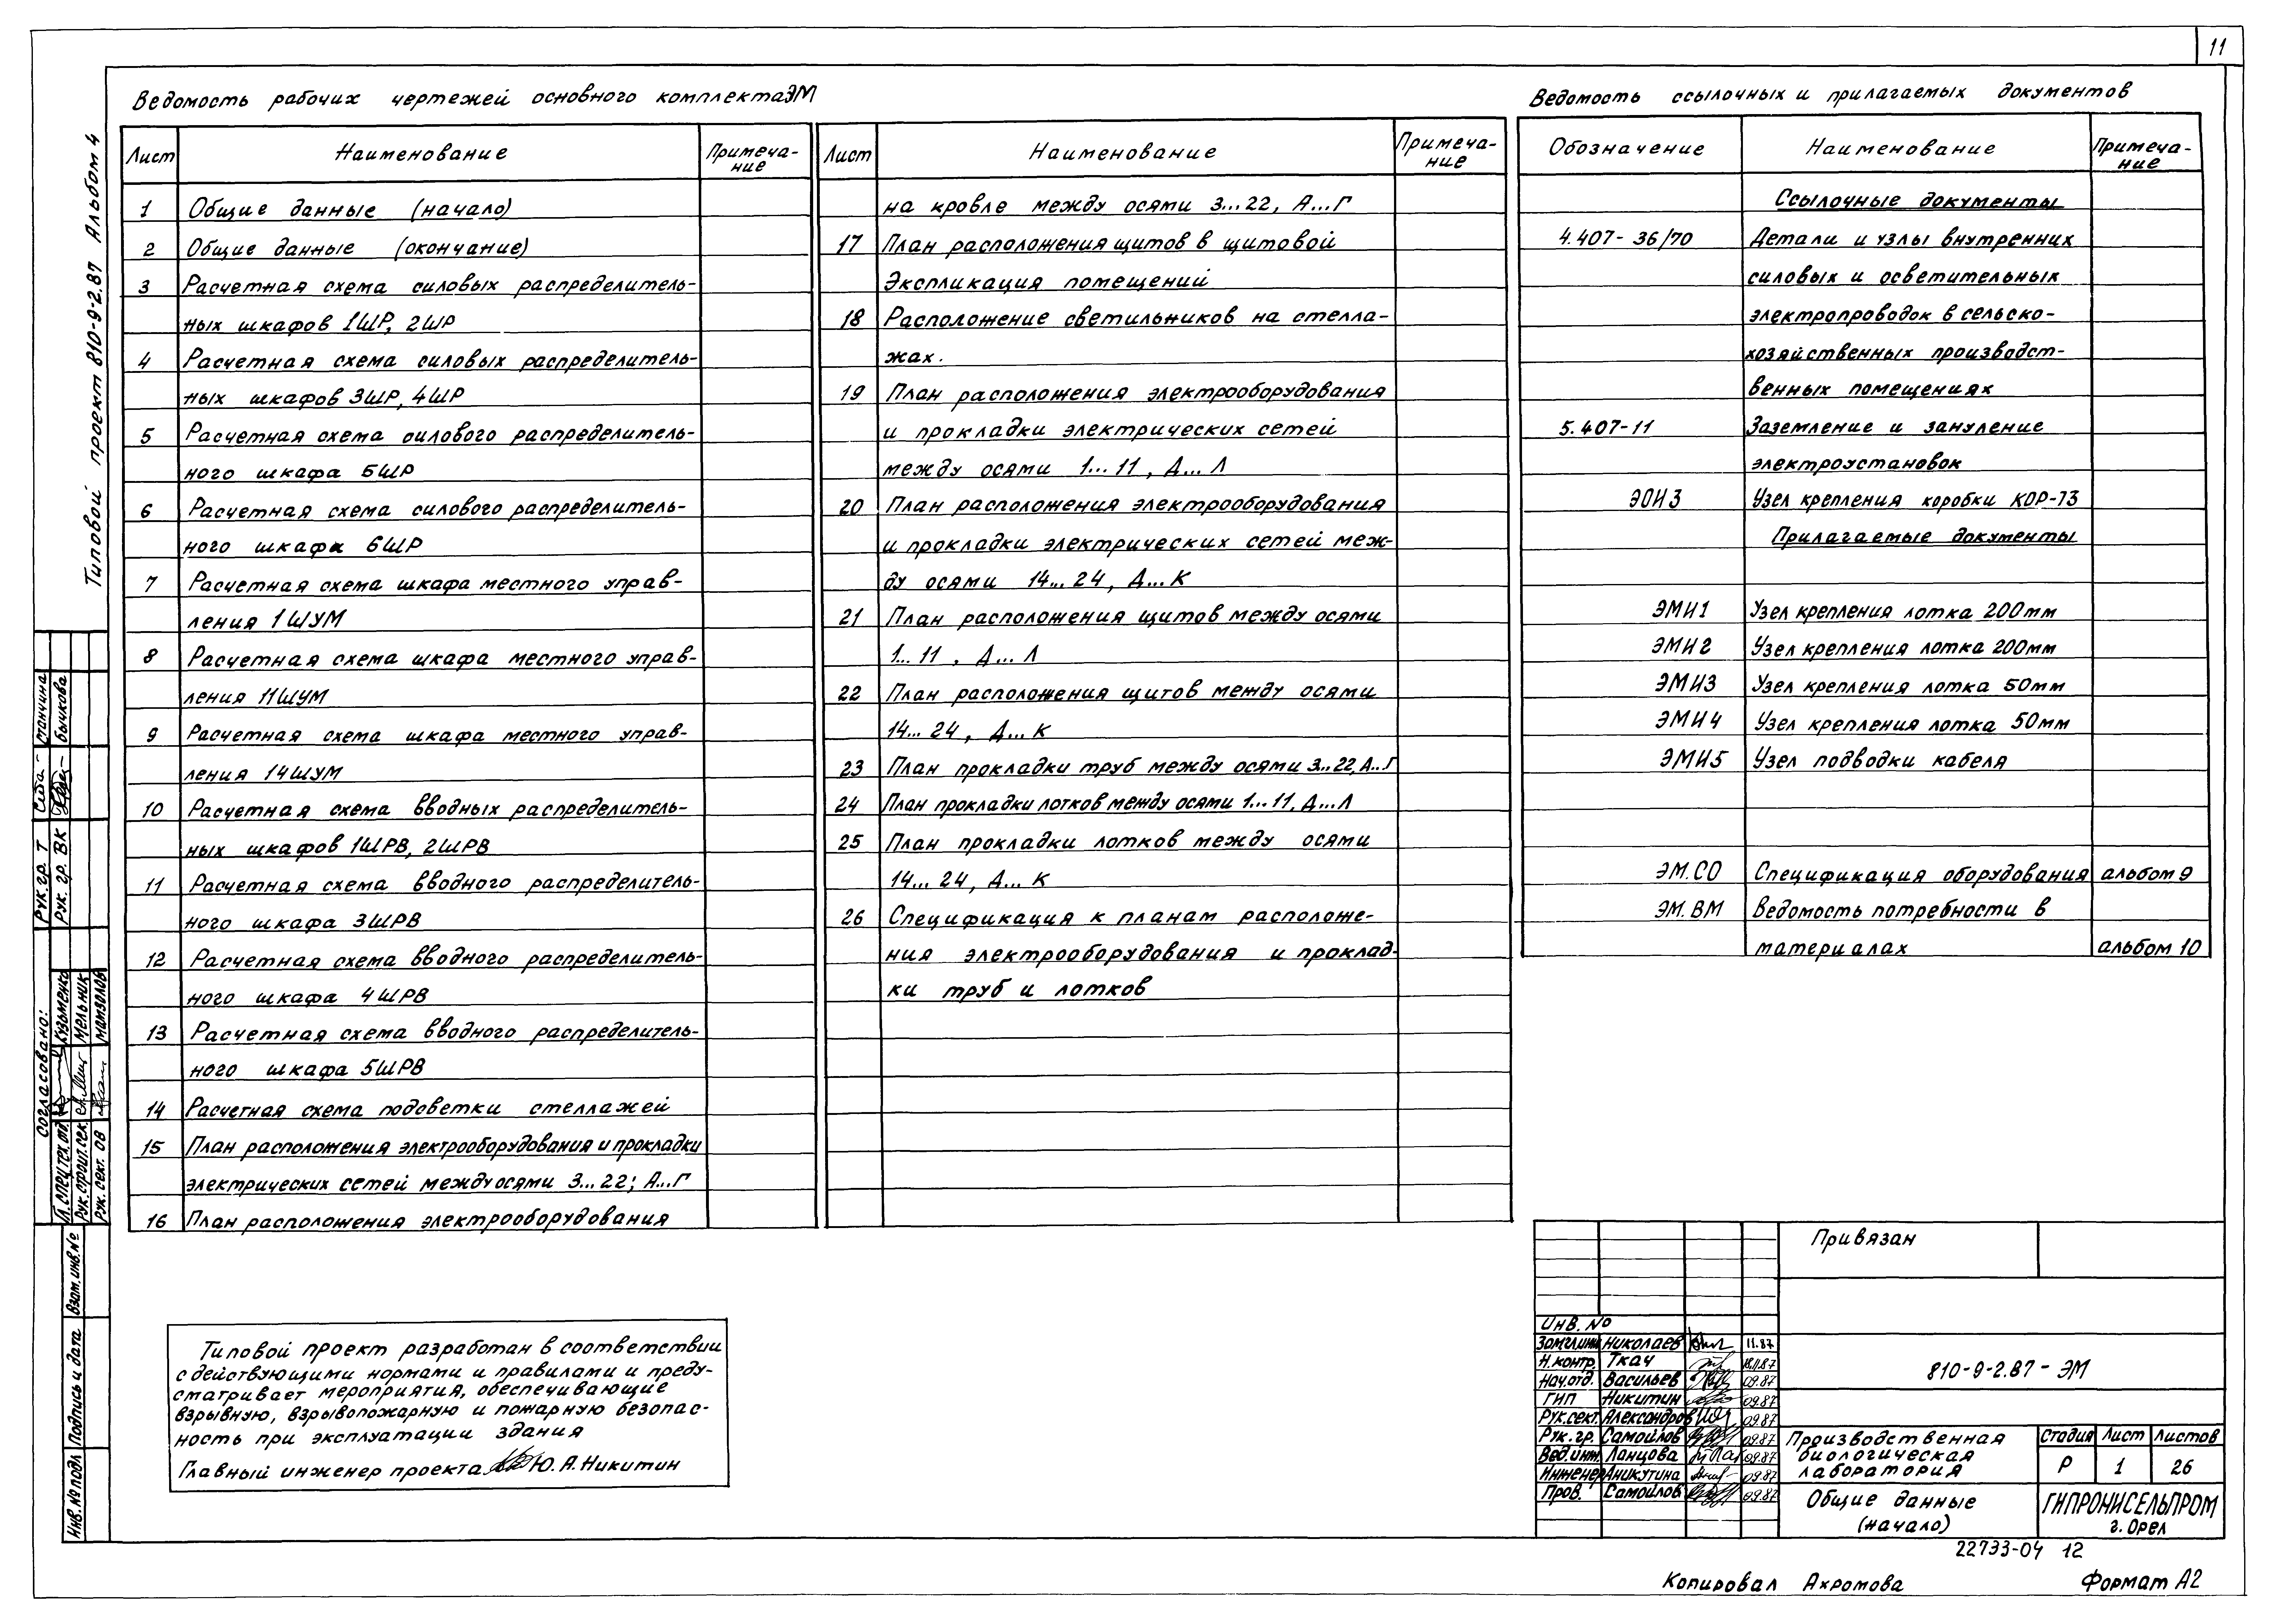 11
Типовой проект 810-9-2.87 Альбом 4
Ведомость рабочих чертежей основного комплекта ЭМ
Лист Наименование Примеча-
ние
1 Общие данные (начало)
2 Общие данные (окончание)
3 Расчетная схема силовых распределитель-
ных шкафов 1ШР, 2ШР
4 Расчетная схема силовых распределитель-
ных шкафов 3ШР, 4ШР
5 Расчетная схема силового распределитель-
ного шкафа 5ШР
6 Расчетная схема силового распределитель-
ного шкафа 6ШР
7 Расчетная схема шкафа местного управ-
ления 1ШУМ
8 Расчетная схема шкафа местного управ-
ления 11ШУМ
9 Расчетная схема шкафа местного управ-
ления 14ШУМ
10 Расчетная схема вводных распределитель-
ных шкафов 1ШРВ, 2ШРВ
11 Расчетная схема вводного распределитель-
ного шкафа 3ШРВ
12 Расчетная схема вводного распределитель-
ного шкафа 4ШРВ
13 Расчетная схема вводного распределитель-
ного шкафа 5ШРВ
14 Расчетная схема подсветки стеллажей
15 План расположения электрооборудования и прокладки
электрических сетей между осями 3...22; А...Г
16 План расположения электрооборудования
Лист Наименование Примеча-
ние
на кровле между осями 3...22, А...Г
17 План расположения щитов в щитовой
Экспликация помещений
18 Расположение светильников на стелла-
жах.
19 План расположения электрооборудования
и прокладки электрических сетей
между осями 1...11, Д...Л
20 План расположения электрооборудования
и прокладки электрических сетей меж-
ду осями 14...24, Д...К
21 План расположения щитов между осями
1...11, Д...Л
22 План расположения щитов между осями
14...24, Д...К
23 План прокладки труб между осями 3...22, А...Г
24 План прокладки лотков между осями 1...11, Д...Л
25 План прокладки лотков между осями
14...24, Д...К
26 Спецификация к планам расположе-
ния электрооборудования и проклад-
ки труб и лотков
Ведомость ссылочных и прилагаемых документов
Обозначение Наименование Примеча-
ние
Ссылочные документы
4.407-36/70 Детали и узлы внутренних
силовых и осветительных
электропроводок в сельско-
хозяйственных производст-
венных помещениях
5.407-11 Заземление и зануление
электроустановок
ЭОИ3 Узел крепления коробки КОР-73
Прилагаемые документы
ЭМИ1 Узел крепления лотка 200мм
ЭМИ2 Узел крепления лотка 200мм
ЭМИ3 Узел крепления лотка 50мм
ЭМИ4 Узел крепления лотка 50мм
ЭМИ5 Узел подводки кабеля
ЭМ.СО Спецификация оборудования альбом 9
ЭМ.ВМ Ведомость потребности в
материалах альбом 10
Типовой проект разработан в соответствии
с действующими нормами и правилами и преду-
сматривает мероприятия, обеспечивающие
взрывную, взрывопожарную и пожарную безопас-
ность при эксплуатации здания
Главный инженер проекта Ю.А.Никитин
Согласовано:
Гл. спец. тех. отд. Кузьменко
Рук. строит. сек. Мельник
Рук. сект. ОВ
Рук. гр. Т Станчина
Рук. гр. ВК Бычкова
Взам. инв. №
Подпись и дата
Инв. № подл
Привязан
Инв. №
Зам.гл.инж Николаев 11.87
Н.контр. Ткач 18.11.87
Нач.отд. Васильев 09.87
ГИП Никитин 09.87
Рук.сект. Александров 09.87
Рук.гр. Самойлов 09.87
Вед.инж. Ланцова 09.87
Инженер Аникутина 09.87
Пров. Самойлов 09.87
810-9-2.87-ЭМ
Производственная
биологическая
лаборатория
Стадия Лист Листов
Р 1 26
Общие данные
(начало)
ГИПРОНИСЕЛЬПРОМ
г. Орел
22733-04 12
Копировал Ахромова Формат А2